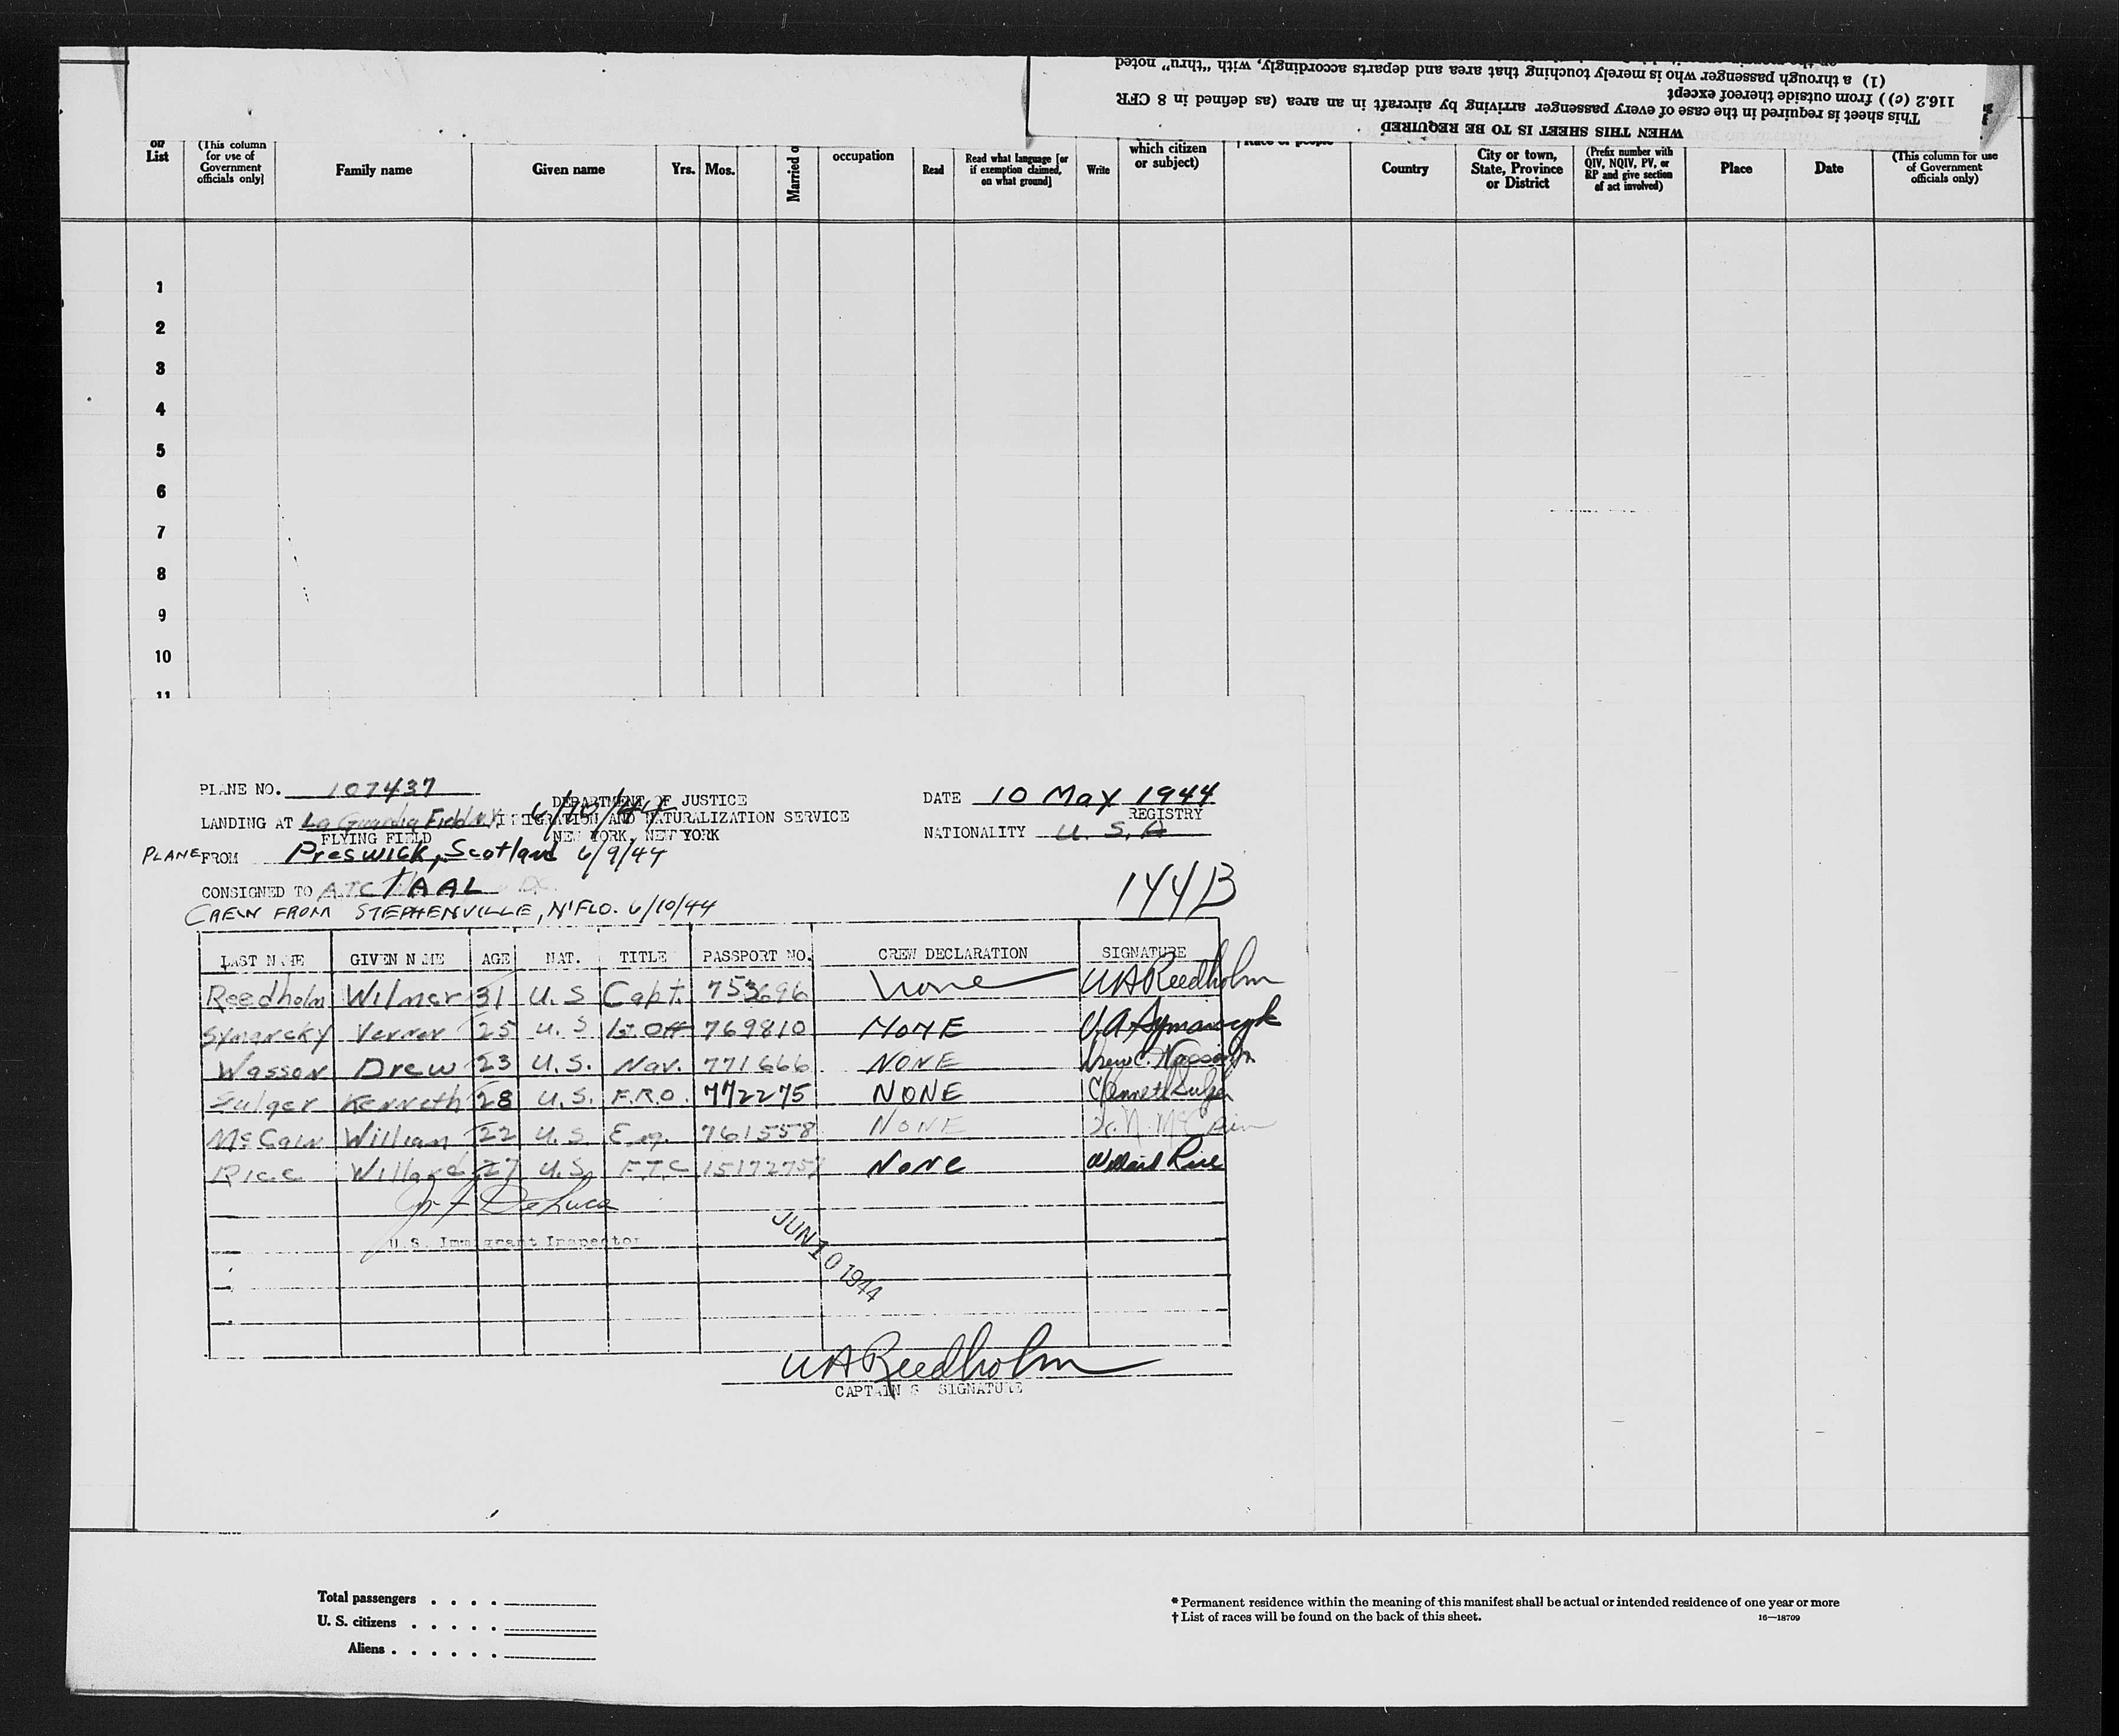 noted "thru" with accordingly, departs and area that touching merely is who passenger through a (1)
This sheet is required in the case of every passenger arriving by aircraft in an area (as defined in 8 CFR
116.2 (c)) from outside thereof except
(1) a through passenger who is merely touching that area and departs accordingly, with "thru" noted
WHEN THIS SHEET IS TO BE REQUIRED
on List (This column for use of Government officials only] Family name Given name Yrs. Mos. Married o occupation Read Read what language [or if exemption claimed, on what ground] Write which citizen or subject) Country City or town, State, Province or District (Prefix number with QIV, NQIV, PV, or RP and give section of act involved) Place Date (This column for use of Government officials only)
1
2
3
4
5
6
7
8
9
10
11
PLANE NO. 107437
DEPARTMENT OF JUSTICE
DATE 10 May 1944
LANDING AT La Guardia Field N.Y. 6/10/44
IMMIGRATION AND NATURALIZATION SERVICE
REGISTRY
FLYING FIELD
NEW YORK, NEW YORK
NATIONALITY U.S.A
PLANE FROM Preswick, Scotland 6/9/44
CONSIGNED TO ATC AAL
144B
CREW FROM STEPHENVILLE, N'FLD. 6/10/44
LAST NAME GIVEN NAME AGE NAT. TITLE PASSPORT NO. CREW DECLARATION SIGNATURE
Reedholm Wilmer 31 U.S Capt. 753696 None WAReedholm
Verner 25 U.S 1st Off 769810 NONE
Wasson Drew 23 U.S. Nav. 771666 NONE Drew C. Wasson
Sulger Kenneth 28 U.S. F.R.O. 772275 NONE Kenneth Sulger
McCain William 22 U.S. Eng. 761558 NONE
Rice Willard 27 U.S. F.T.C None Willard Rice
De Luca
U.S. Immigrant Inspector
JUN 10 1944
WAReedholm
CAPTAIN S SIGNATURE
Total passengers . . . .
U. S. citizens . . . . .
Aliens . . . . . .
* Permanent residence within the meaning of this manifest shall be actual or intended residence of one year or more
† List of races will be found on the back of this sheet. 16—18709